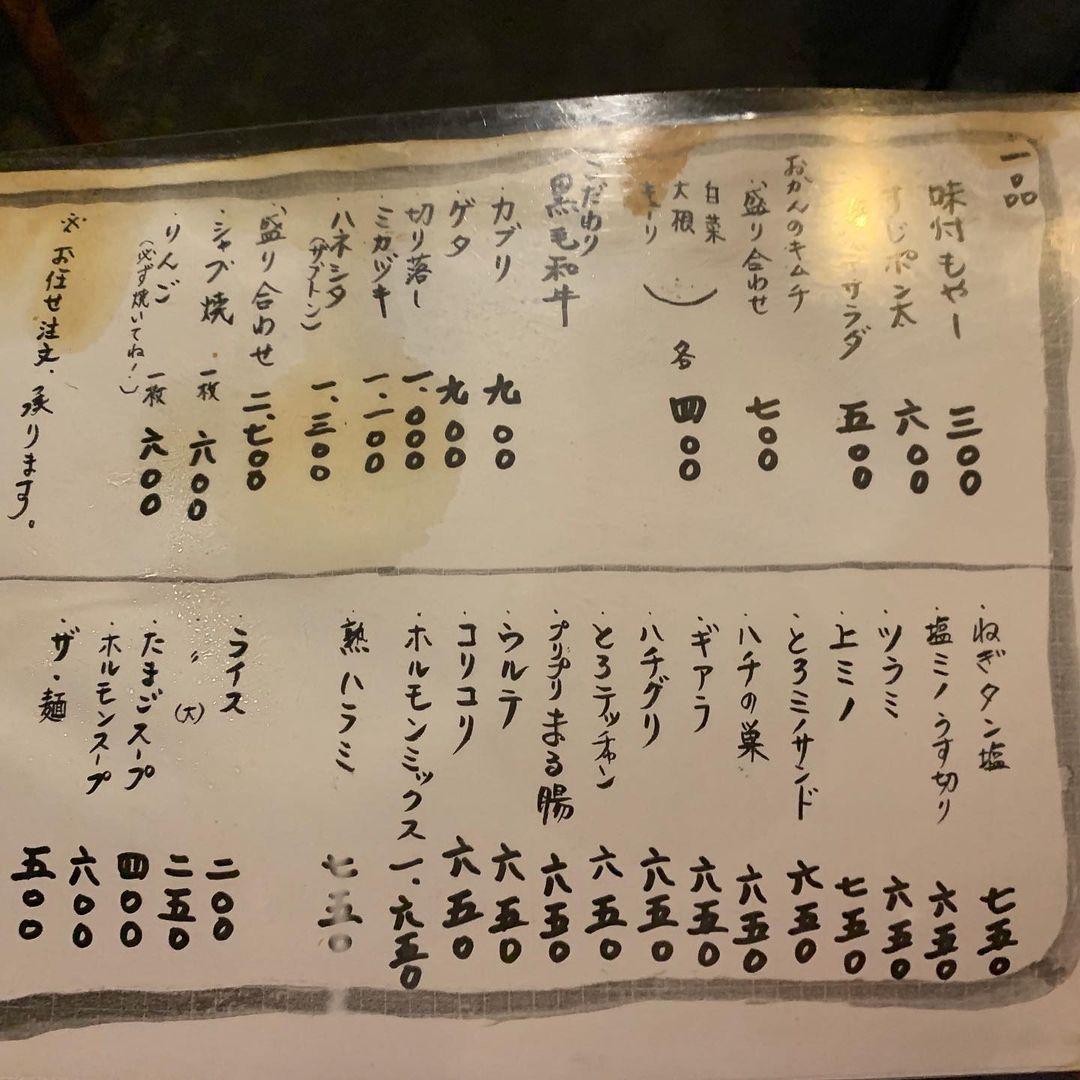 一品
味付もやし 三〇〇
すじポン太 六〇〇
サラダ 五〇〇
おかんのキムチ
盛り合わせ 七〇〇
白菜
大根 各 四〇〇
キューリ
こだわり
黒毛和牛
・カブリ 九〇〇
・ゲタ 九〇〇
・切り落し 一、〇〇〇
・ミカヅキ 一、一〇〇
・ハネシタ 一、三〇〇
(ザブトン)
・盛り合わせ 二、七〇〇
・シャブ焼 一枚 六〇〇
・りんご 一枚 六〇〇
(必ず焼いてね!)
※ お任せ注文、承ります。
・ねぎタン塩 七五〇
・塩ミノうす切り 六五〇
・ツラミ 六五〇
・上ミノ 七五〇
・とろミノサンド 六五〇
・ハチの巣 六五〇
・ギアラ 六五〇
・ハチグリ 六五〇
・とろテッチャン 六五〇
・プリプリまる腸 六五〇
・ウルテ 六五〇
・コリコリ 六五〇
・ホルモンミックス 一、六五〇
・熟ハラミ 七五〇
・ライス 二〇〇
・〃 (大) 二五〇
・たまごスープ 四〇〇
・ホルモンスープ 六〇〇
・ザ・麺 五〇〇